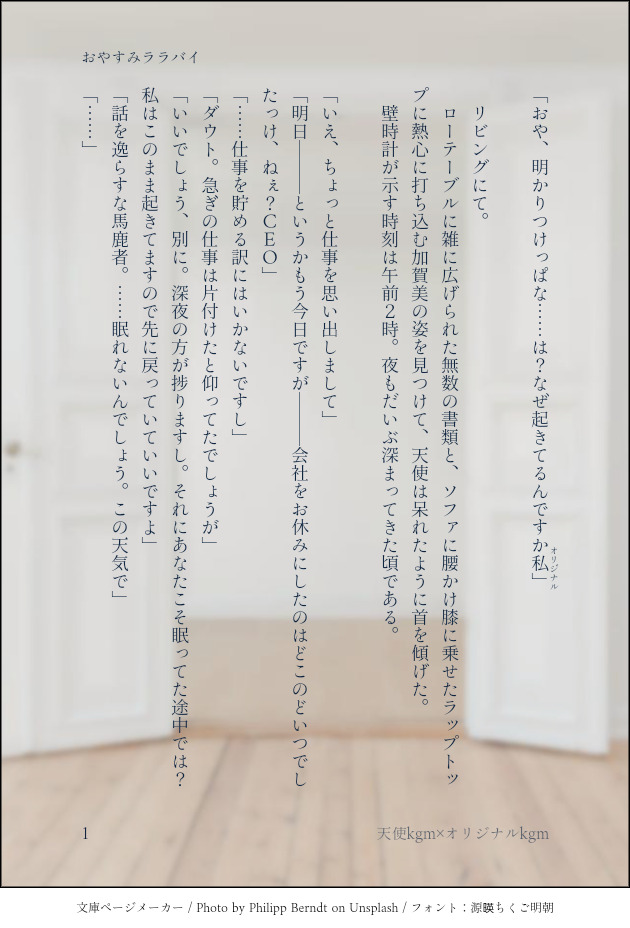 おやすみララバイ
「おや、明かりつけっぱな……は？なぜ起きてるんですか私」
オリジナル
リビングにて。
ローテーブルに雑に広げられた無数の書類と、ソファに腰かけ膝に乗せたラップトッ
プに熱心に打ち込む加賀美の姿を見つけて、天使は呆れたように首を傾げた。
壁時計が示す時刻は午前２時。夜もだいぶ深まってきた頃である。
「いえ、ちょっと仕事を思い出しまして」
「明日――というかもう今日ですが――会社をお休みにしたのはどこのどいつでし
たっけ、ねぇ？ＣＥＯ」
「……仕事を貯める訳にはいかないですし」
「ダウト。急ぎの仕事は片付けたと仰ってたでしょうが」
「いいでしょう、別に。深夜の方が捗りますし。それにあなたこそ眠ってた途中では？
私はこのまま起きてますので先に戻っていていいですよ」
「話を逸らすな馬鹿者。……眠れないんでしょう。この天気で」
「……」
1
天使kgm×オリジナルkgm
文庫ページメーカー / Photo by Philipp Berndt on Unsplash / フォント：源暎ちくご明朝